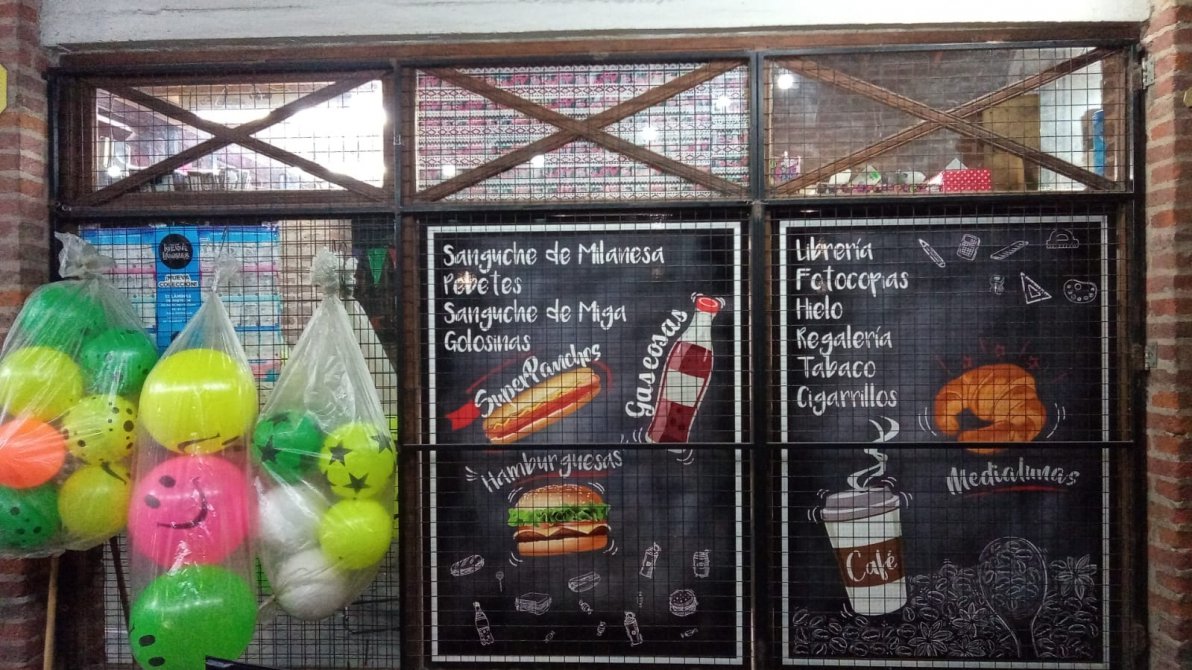 ¡NUEVA
COLECCIÓN!
Sanguche de Milanesa
Pebetes
Sanguche de Miga
Golosinas
SuperPanchos
Gaseosas
Hamburguesas
Librería
Fotocopias
Hielo
Regalería
Tabaco
Cigarrillos
Medialunas
Café